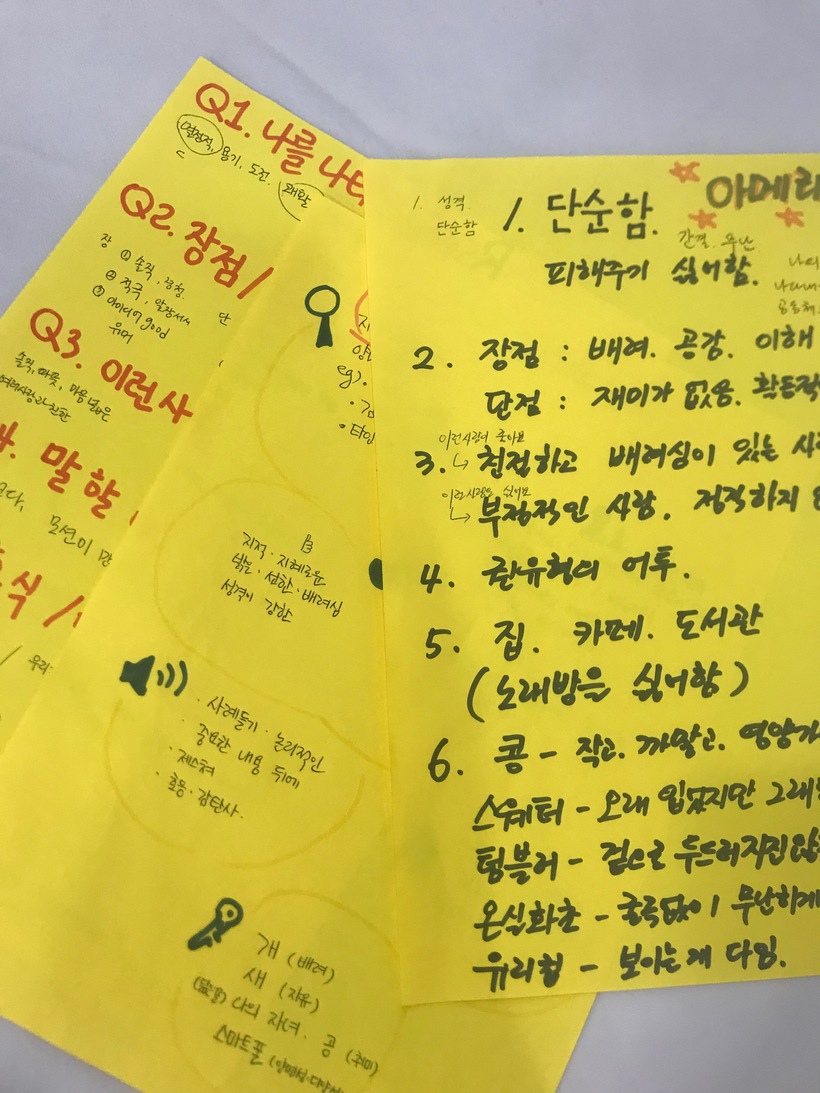 Q1. 나를 나타
열정적, 용기, 도전. 쾌활
Q2. 장점 /
장 ① 솔직, 긍정.
② 적극, 앞장서서
단
③ 아이디어 good
유머
Q3. 이런 사
솔직, 따뜻, 마음넓은
4. 말할
모션이 많
식 /
우리
eg).
·타임
지적·지혜로운
밝은·선한·배려심
성격이 강한
·사례들기·논리적인
·중요한 내용 뒤에
·제스쳐
·호응·감탄사.
개 (배려)
새 (자유)
나의 자녀. 공 (취미)
스마트폰
아메리
1. 성격
단순함
1. 단순함.
간결. 무난
피해주기 싫어함.
2. 장점 : 배려. 공감. 이해
단점 : 재미가 없음. 활동적
이런사람이 좋아요
3. 친절하고 배려심이 있는 사
이런사람은 싫어요
부정적인 사람. 정직하지
4. 권유형의 어투.
5. 집. 카페. 도서관
(노래방은 싫어함)
6. 콩 - 작고. 까맣고. 영양가
스웨터 - 오래 입었지만 그래
텀블러 - 겉으로 두드러지진않
온실화초 - 굴곡없이 무난하게
유리컵 - 보이는게 다임.